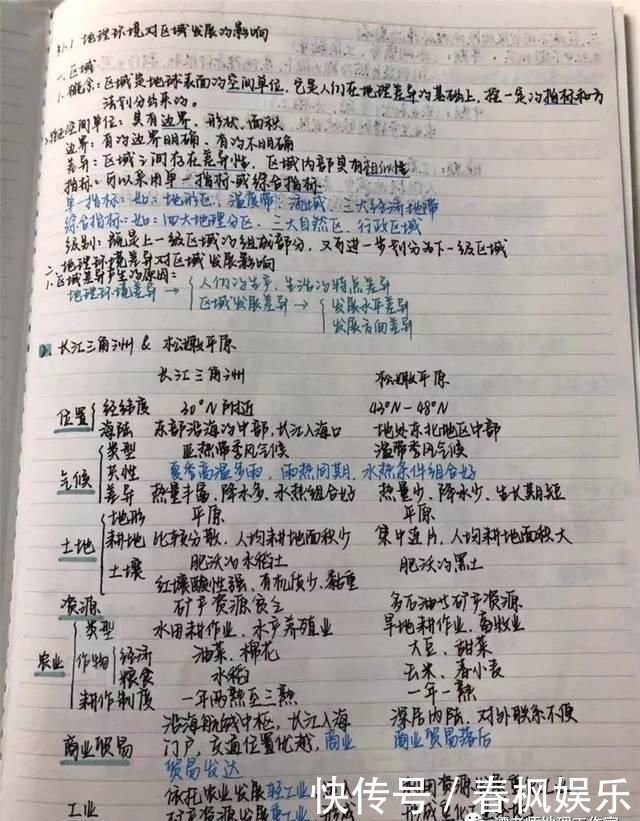 §1.1 地理环境对区域发展的影响
一、区域
1. 概念：区域是地球表面的空间单位，它是人们在地理差异的基础上，按一定的指标和方
法划分出来的。
空间单位：具有边界、形状、面积
边界：有的边界明确、有的不明确
差异：区域之间存在差异性，区域内部具有相似性
指标：可以采用单一指标或综合指标
单一指标：如：地形区、温度带、流域、三大经济地带
综合指标：如：四大地理分区、三大自然区、行政区域
级别：既是上一级区域的组成部分，又可进一步划分为下一级区域
二、地理环境差异对区域发展影响
1. 区域差异产生的原因：
地理环境差异 → 人们的生产、生活的特点差异
区域发展差异 → 发展水平差异
发展方向差异
2. 长江三角洲 & 松嫩平原
长江三角洲 松嫩平原
位置 经纬度 30°N附近 43°N-48°N
海陆 东部沿海的中部，长江入海口 地处东北地区中部
气候 类型 亚热带季风气候 温带季风气候
共性 夏季高温多雨，雨热同期，水热条件组合好
差异 热量丰富、降水多、水热组合好 热量少、降水少、生长期短
土地 地形 平原 平原
耕地 比较分散，人均耕地面积少 集中连片，人均耕地面积大
土壤 肥沃的水稻土 肥沃的黑土
红壤酸性强、有机质少、黏重
资源 矿产资源贫乏 多石油等矿产资源
农业 类型 水田耕作业，水产养殖业 旱地耕作业，畜牧业
作物 经济 油菜、棉花 大豆、甜菜
粮食 水稻 玉米、春小麦
耕作制度 一年两熟至三熟 一年一熟
沿海航域中枢，长江入海 深居内陆，对外联系不便
商业贸易 门户，交通位置优越，商业 商业贸易落后
贸易发达
工业 依托农业发展轻工业
快传号／春枫娱乐